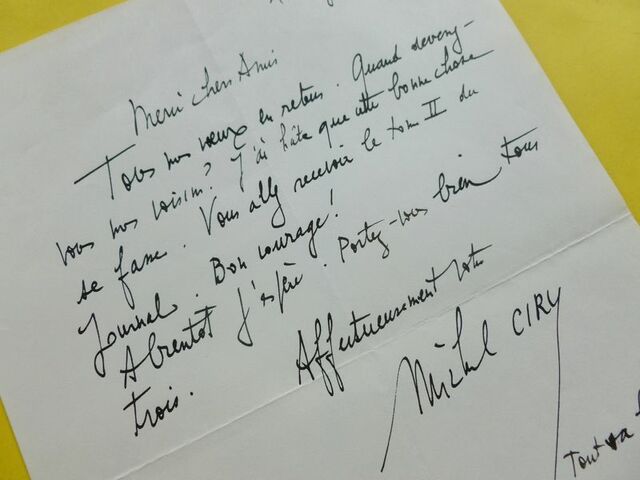 Merci chers Amis
Tous nos vœux en retour. Quand devenez-
vous nos voisins? J'ai hâte que cette bonne chose
se fasse. Vous allez recevoir le tome II du
Journal. Bon courage!
A bientôt j'espère. Portez-vous bien tous
trois.
Affectueusement votre
Michel CIRY
Tout va